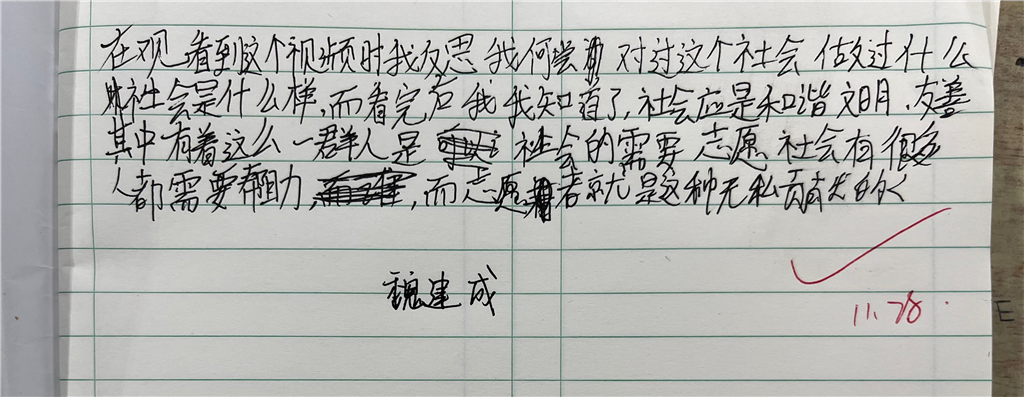 在观看到这个视频时我反思我何尝对过这个社会做过什么
社会是什么样,而看完后我我知道了,社会应是和谐文明.友善
其中有着这么一群人是社会的需要志愿社会有很多
人都需要帮助,而志愿者就是这种无私奉献的人
魏建成
11.28.